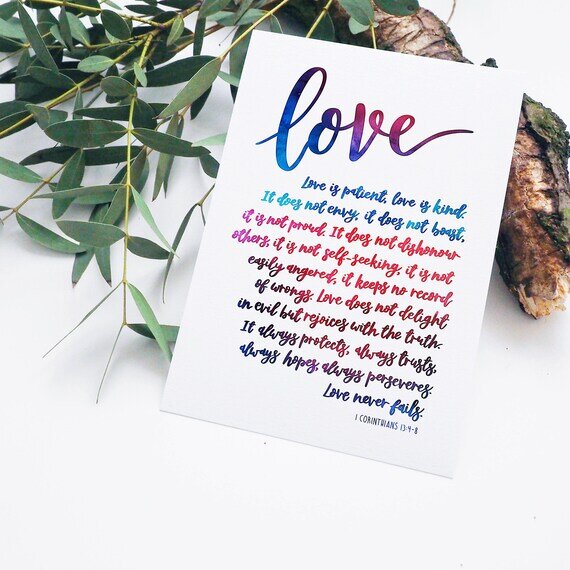 love
Love is patient, love is kind.
It does not envy, it does not boast,
it is not proud. It does not dishonour
others, it is not self-seeking, it is not
easily angered, it keeps no record
of wrongs. Love does not delight
in evil but rejoices with the truth.
It always protects, always trusts,
always hopes, always perseveres.
Love never fails.
1 CORINTHIANS 13:4-8